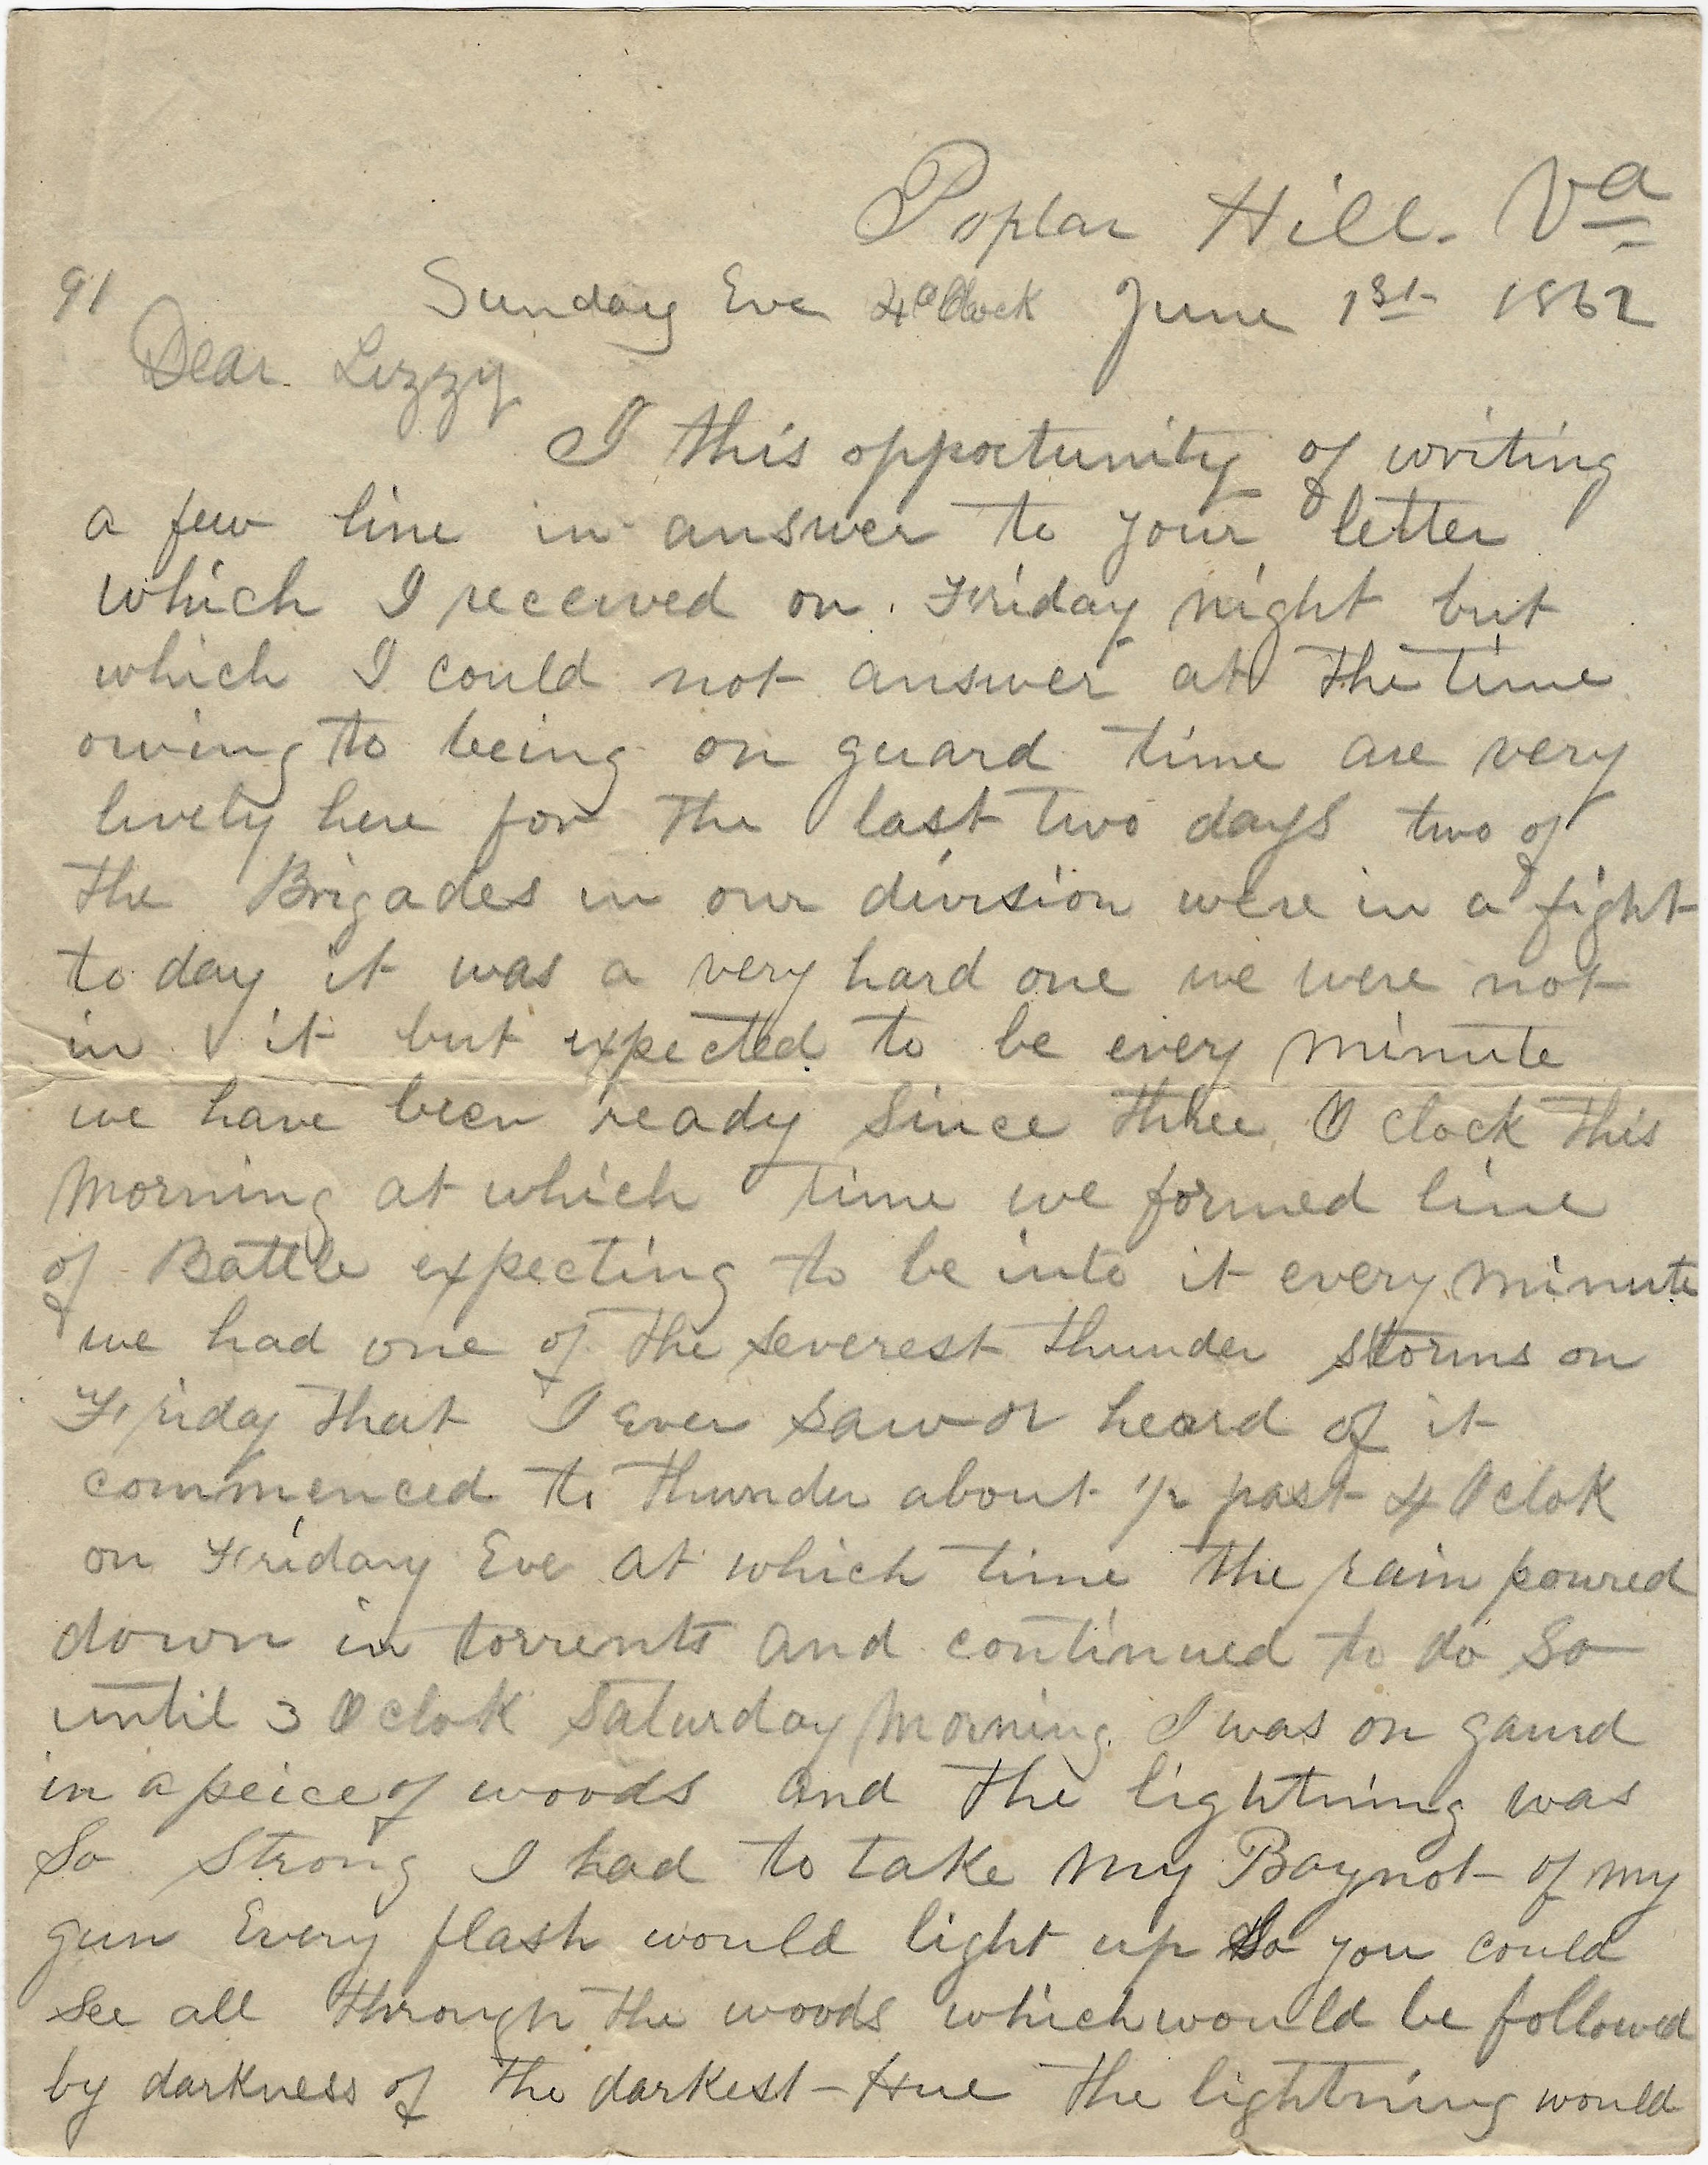 Poplar Hill. Va
91
Sunday Eve 4 O Clock June 1st 1862
Dear Lizzy
I this opportunity of writing
a few line in answer to your letter
which I received on Friday night but
which I could not answer at the time
owing to being on guard time are very
lively here for the last two days two of
the Brigades in our division were in a fight
to day it was a very hard one we were not
in it but expected to be every minute
we have been ready since three O clock this
morning at which time we formed line
of Battle expecting to be into it every minute
we had one of the severest thunder storms on
Friday that I Ever saw or heard of it
commenced to thunder about 1/2 past 4 O clok
on Friday Eve at which time the rain poured
down in torrents and continued to do so
until 3 O clok Saturday morning. I was on gaurd
in a peice of woods and the lightning was
So Strong I had to take my Baynot of my
gun Every flash would light up so you could
see all through the woods which would be followed
by darkness of the darkest Hue the lightning would